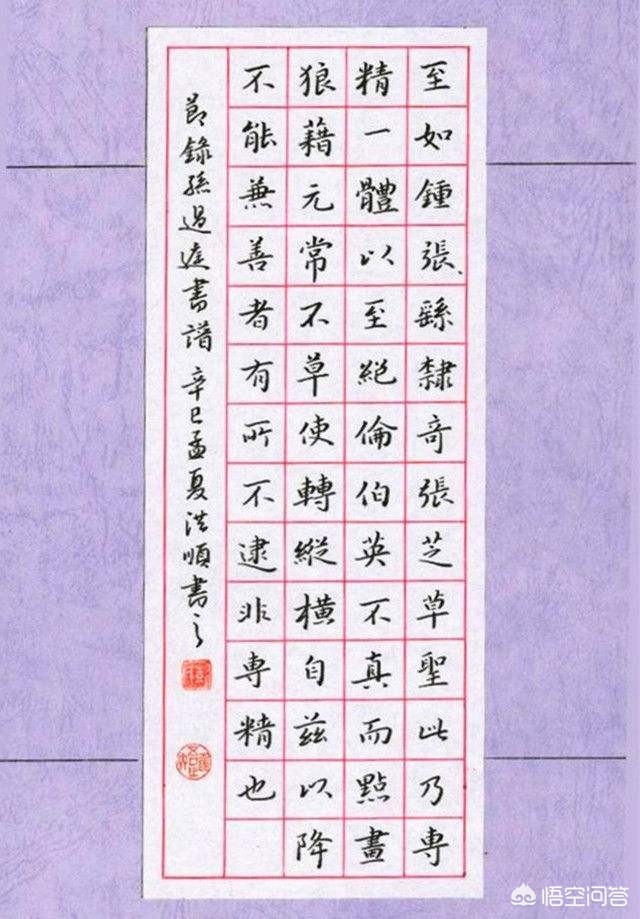 至如鍾張、繇隸奇張芝草聖此乃專
精一體以至絕倫伯英不真而點畫
狼藉元常不草使轉縱橫自茲以降
不能兼善者有所不逮非專精也
節錄孫過庭書譜 辛巳孟夏洪順書之
悟空问答